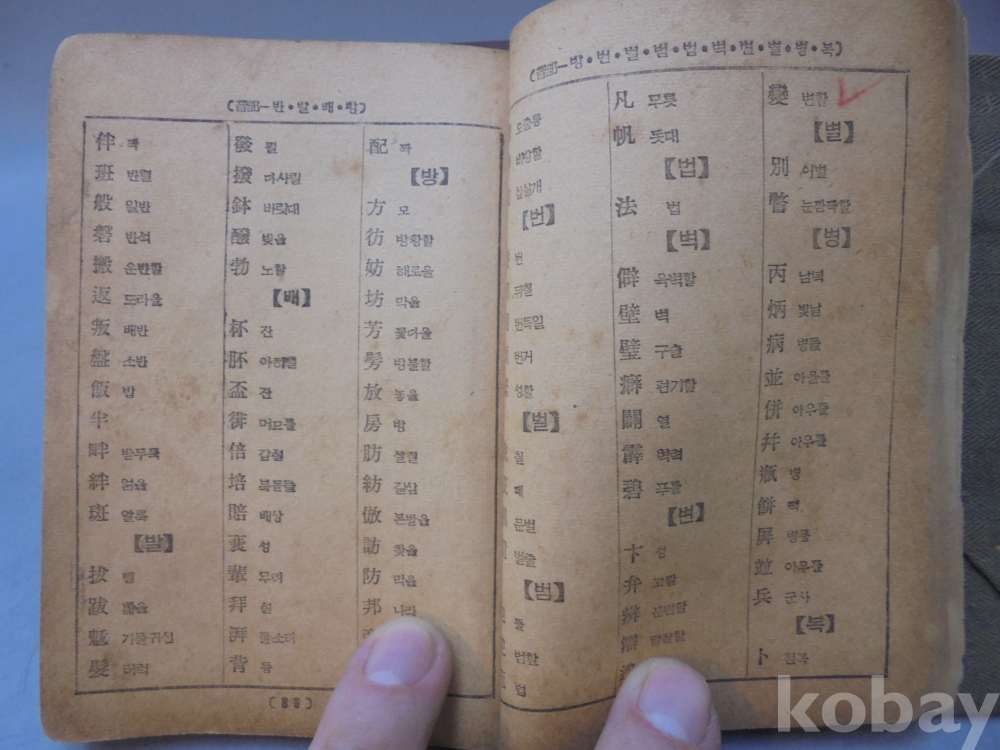 (音部―반·발·배·방)
伴 짝
班 반렬
般 일반
磐 반석
搬 운반할
返 도라올
叛 배반
盤 소반
飯 밥
半
畔 밭두둑
絆 얽을
斑 얼룩
【발】
拔 뺄
跋 밟을
魃 가믈귀신
髮 터럭
發 필
撥 다사릴
鉢 바릿대
醱 빚을
勃 노할
【배】
杯 잔
胚 아해밸
盃 잔
徘 머므를
倍 갑절
培 북돋을
賠 배상
裵 성
輩 무리
拜 절
湃 물소리
背 등
配 짝
【방】
方 모
彷 방황할
妨 해로울
坊 막을
芳 꽃다울
髣 방불할
放 놓을
房 방
肪 살찔
紡 길삼
倣 본받을
訪 찾을
防 막을
邦 나라
(音部―방·번·벌·범·법·벽·변·별·병·복)
오줌통
비방할
【번】
번
뒤칠
번득일
번거
성할
【벌】
칠
떼
문벌
벌줄
【범】
뜰
범할
법
凡 무릇
帆 돗대
【법】
法 법
【벽】
僻 육벽할
壁 벽
璧 구슬
癖 편기할
闢 열
霹 벽력
碧 푸를
【변】
卞 성
弁 고깔
辨 분변할
辯 말잘할
變 변할
【별】
別 이별
瞥 눈깜짝할
【병】
丙 남녁
炳 빛날
病 병들
並 아울를
倂 아우를
幷 아우를
甁 병
餠 떡
屛 병풍
竝 아우를
兵 군사
【복】
卜 점복
kobay